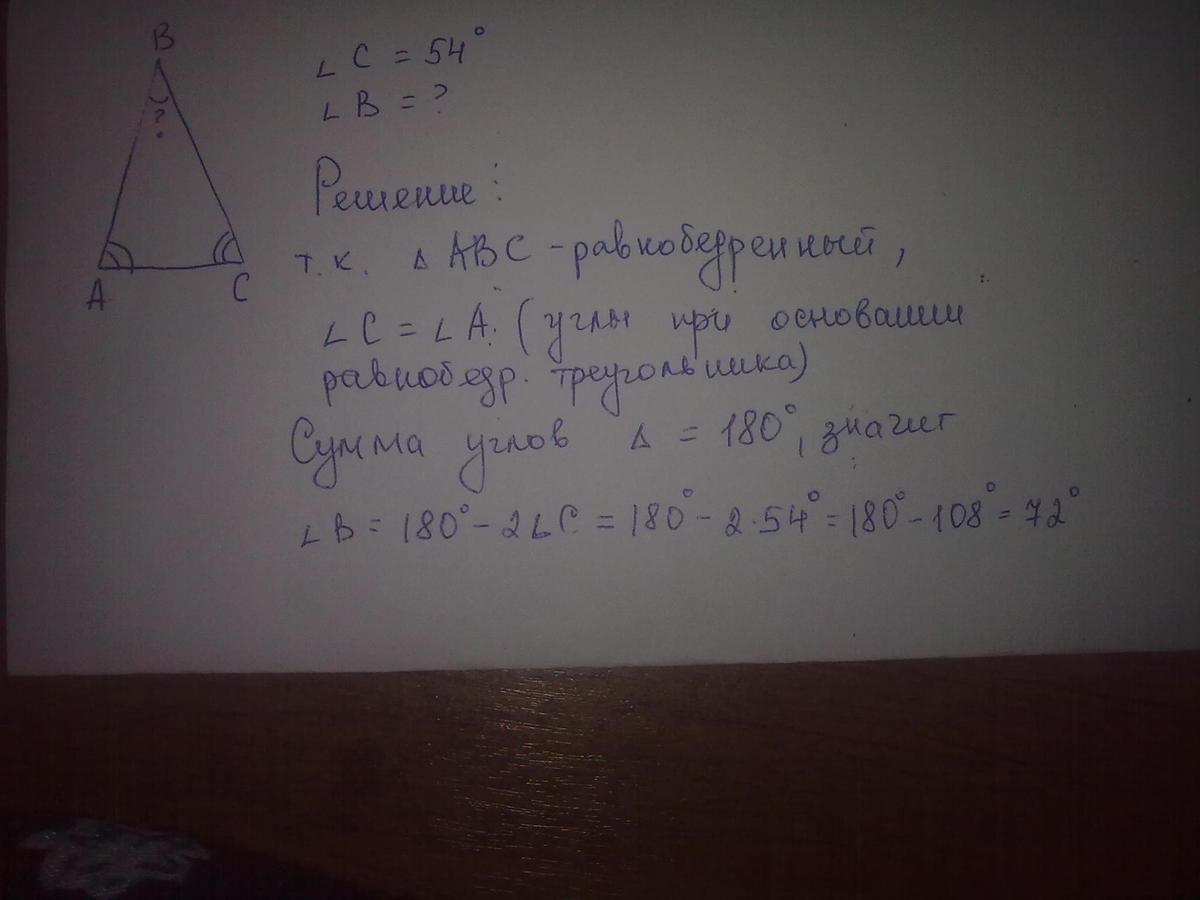 B
∠ C = 54°
∠ B = ?
?
Решение:
т.к. Δ ABC - равнобедренный,
A
C
∠ C = ∠ A. (углы при основании
равнобедр. треугольника)
Сумма углов Δ = 180°, значит
∠ B = 180° - 2∠C = 180° - 2·54° = 180° - 108° = 72°